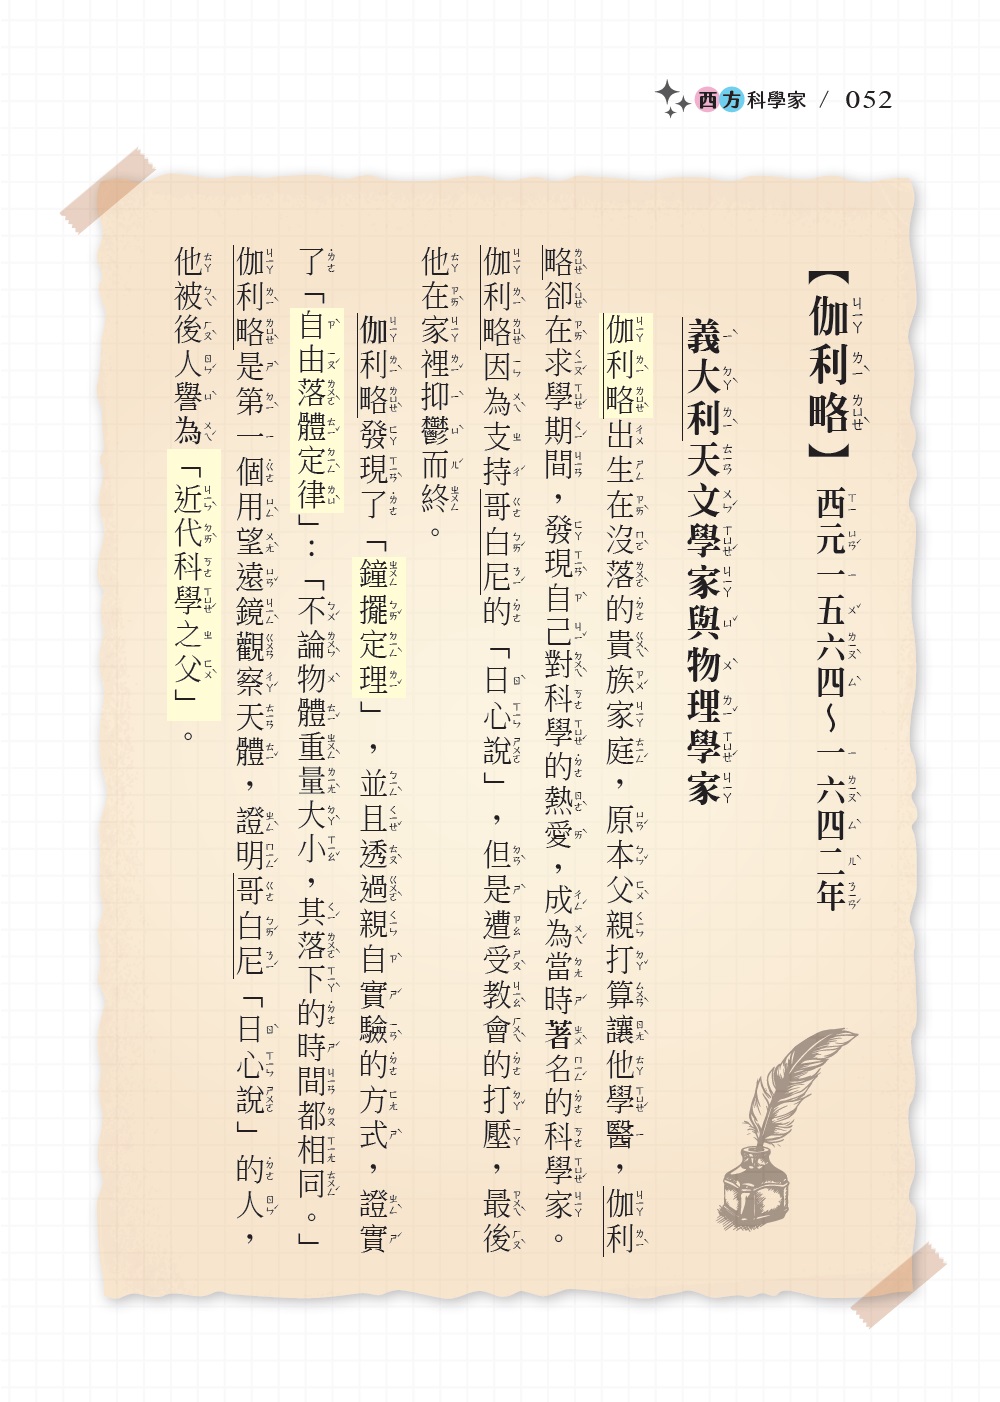 西方科學家 / 052
【伽利略】西元一五六四～一六四二年
義大利天文學家與物理學家
伽利略出生在沒落的貴族家庭，原本父親打算讓他學醫，伽利
略卻在求學期間，發現自己對科學的熱愛，成為當時著名的科學家。
伽利略因為支持哥白尼的「日心說」，但是遭受教會的打壓，最後
他在家裡抑鬱而終。
伽利略發現了「鐘擺定理」，並且透過親自實驗的方式，證實
了「自由落體定律」：「不論物體重量大小，其落下的時間都相同。」
伽利略是第一個用望遠鏡觀察天體，證明哥白尼「日心說」的人，
他被後人譽為「近代科學之父」。